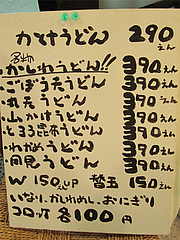 かけうどん 290えん
名物
かしわうどん!! 390えん
・ごぼう天うどん 390えん
・丸天うどん 390えん
・山かけうどん 390えん
・とろろ昆布うどん 390えん
・わかめうどん 390えん
・肉うどん 390えん
W 150円UP 替玉 150えん
いなり、かしわめし、おにぎり
コロッケ 各100円